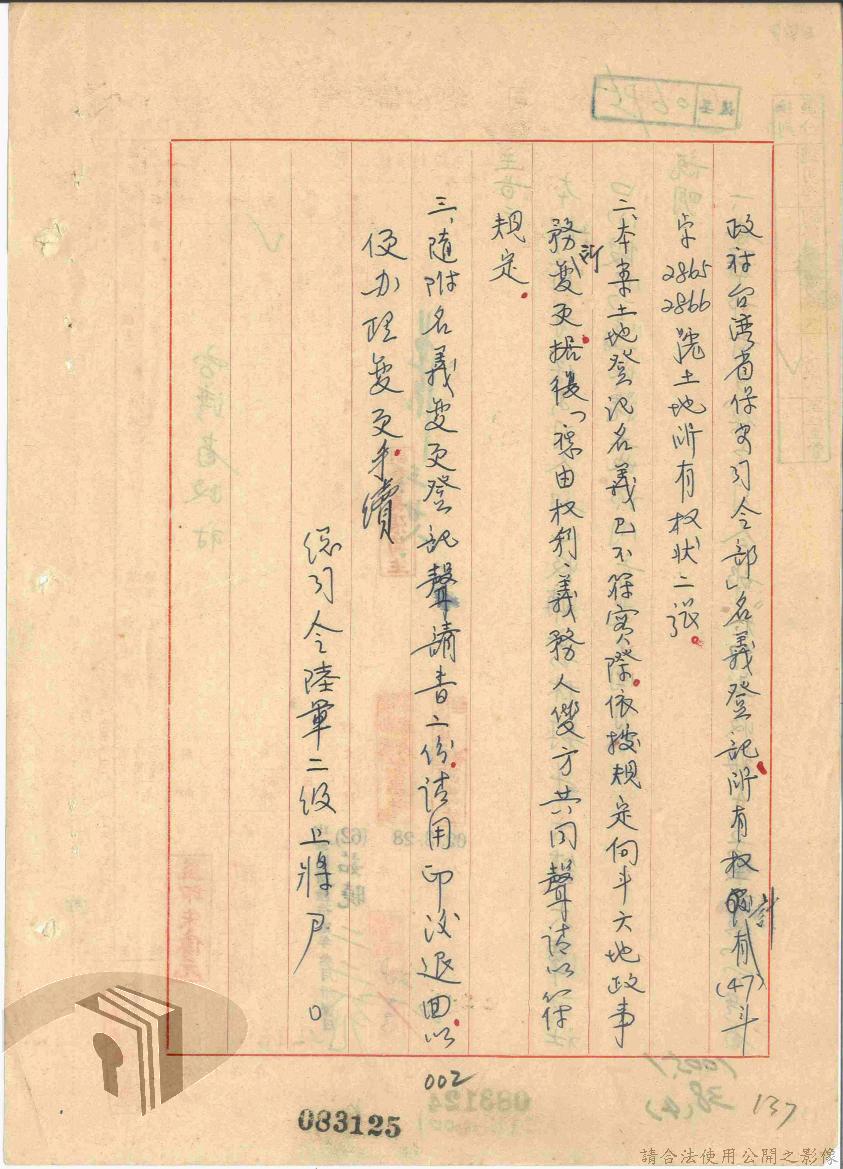 政府台湾省保安司令部」名義登記所有权計有(47)斗
字2865 2866號土地所有权状二張。
二、本案土地登記名義已不符實際,依據規定向斗六地政事
務所変更,据復「須由权利、義務人雙方共同聲请以符
規定。
三、随附名義変更登記聲請書二份,請用印後退回,以
便办理変更手續
總司令陸軍二級上將尹○
002
083125
137
請合法使用公開之影像